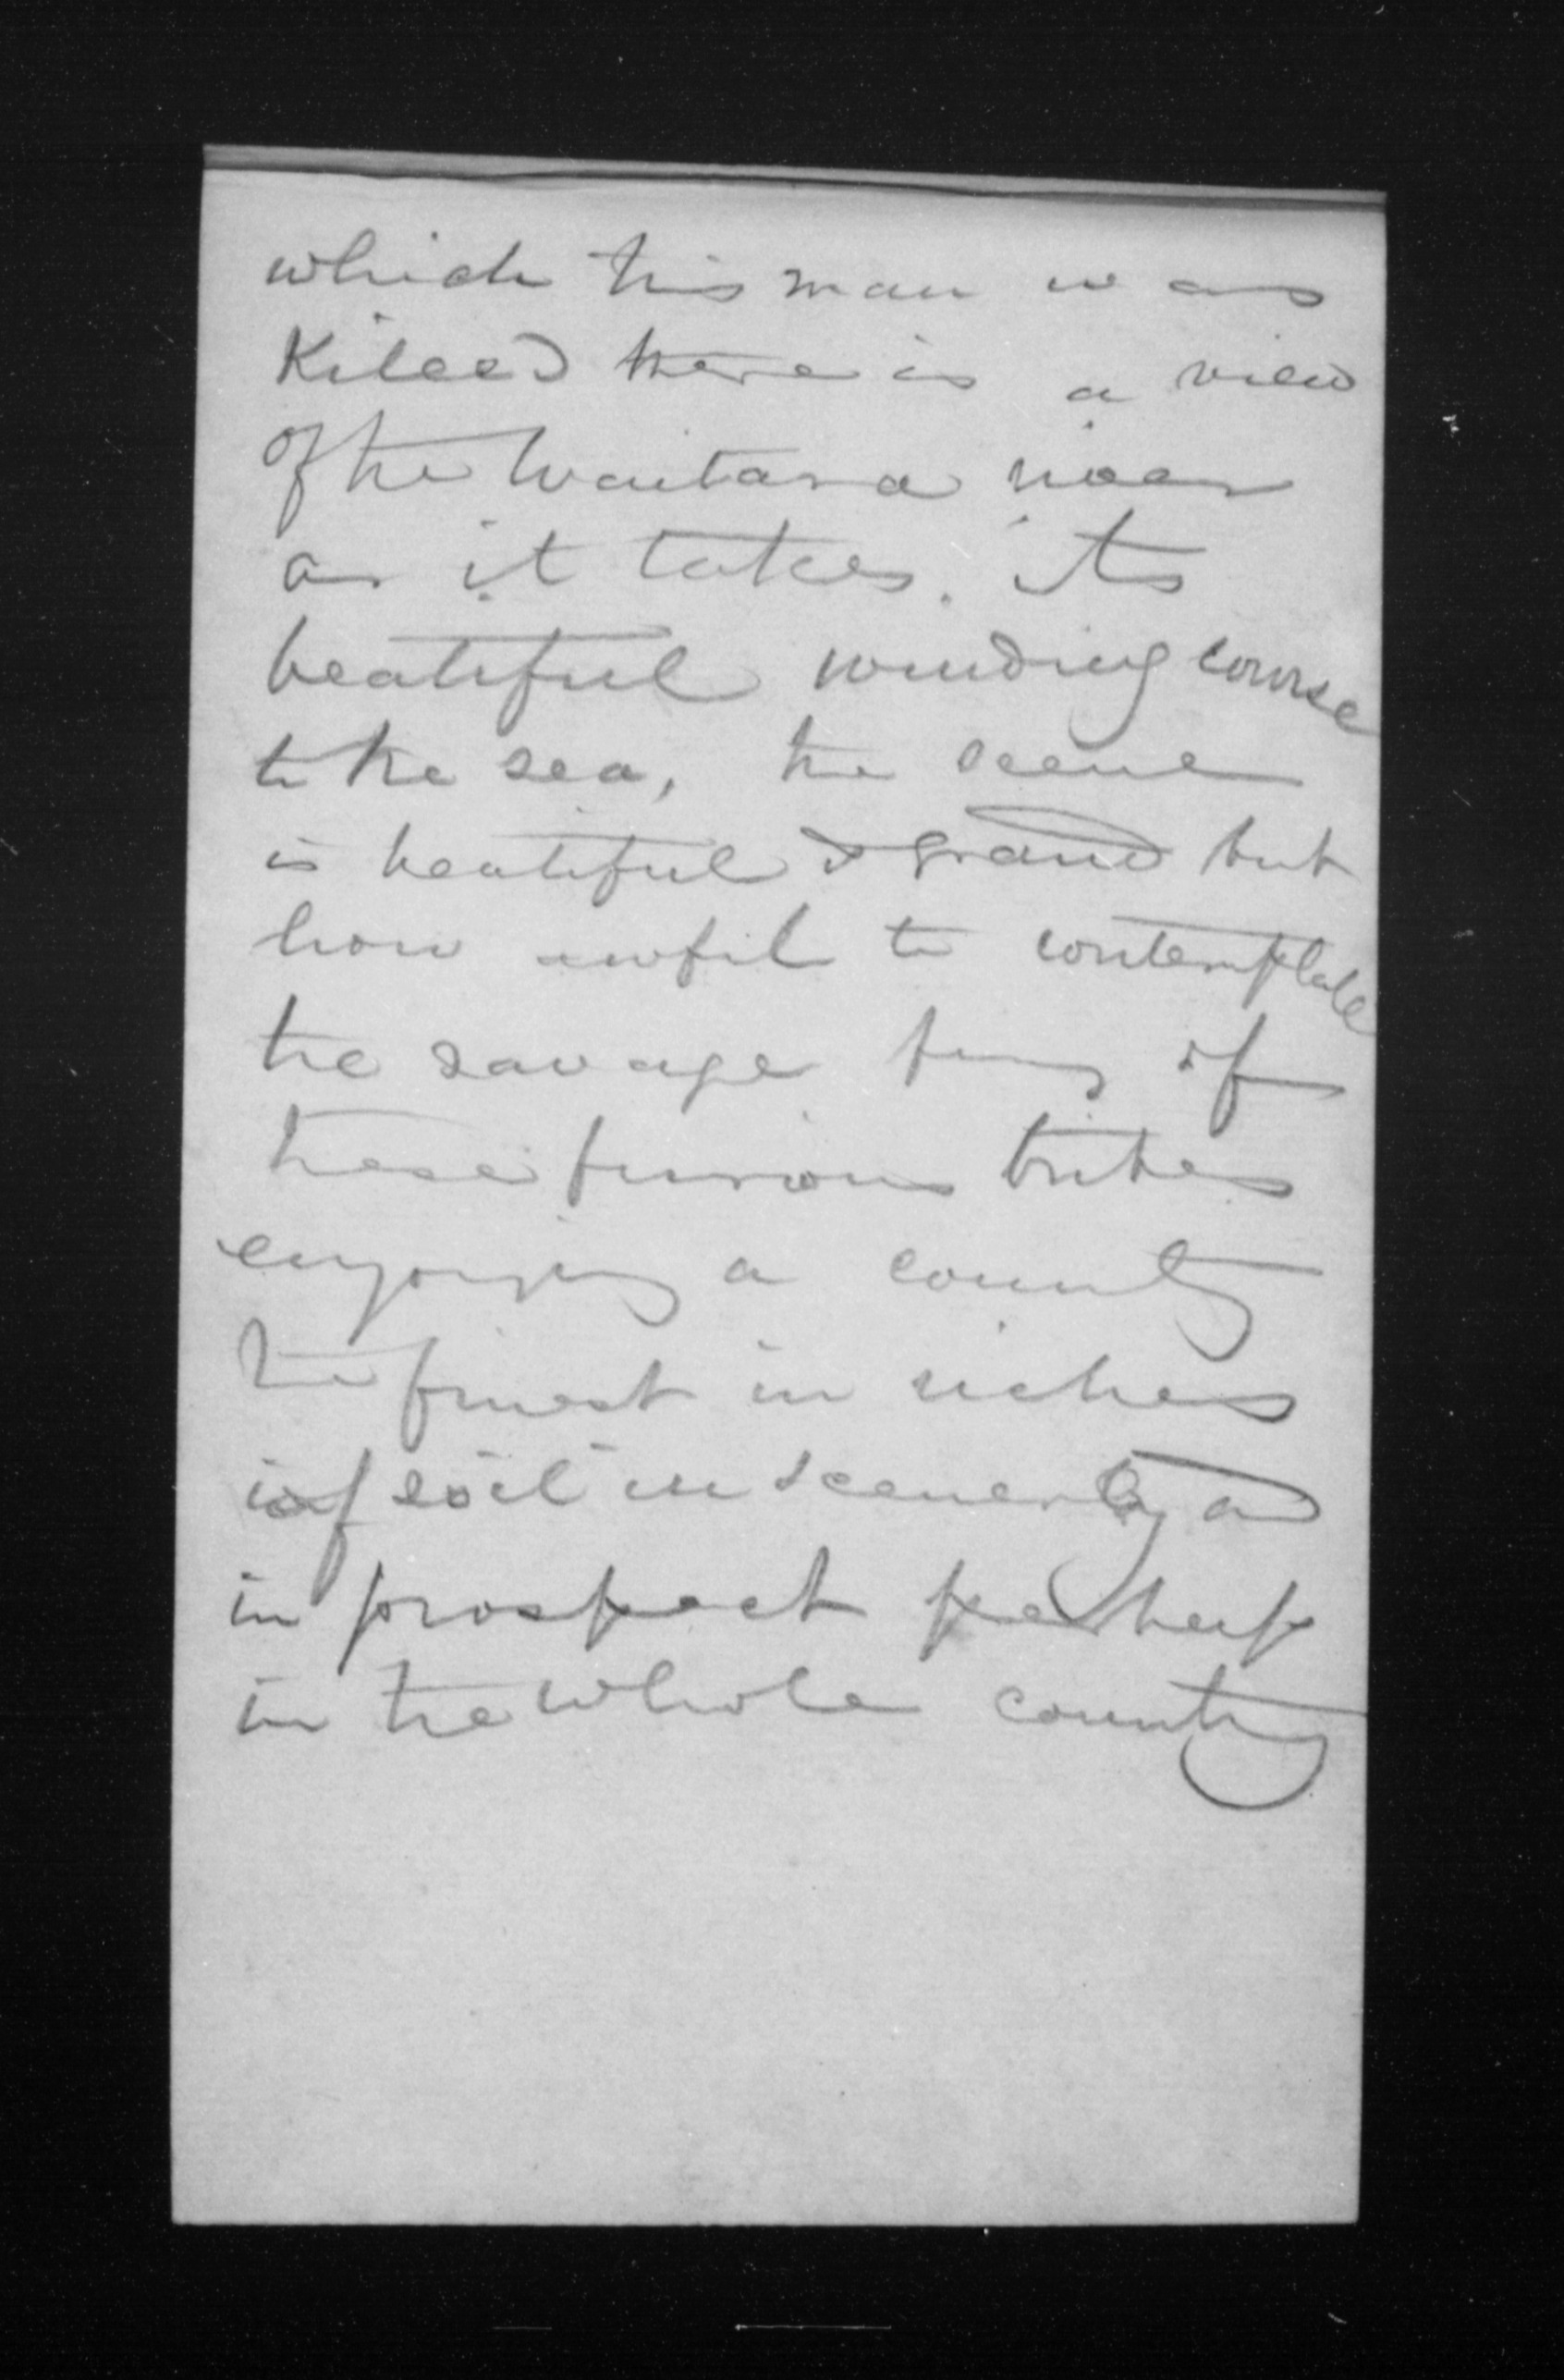 which this man was
Killed there is a view
Of the Waitara river
as it takes its
beatiful winding course
to the sea, the scene
is beatiful & grand but
how awful to contemplate
the savage fury of
these furious tribes
enjoying a country
the finest in riches
of soil in scenery and
in prospect perhaps
in the whole country